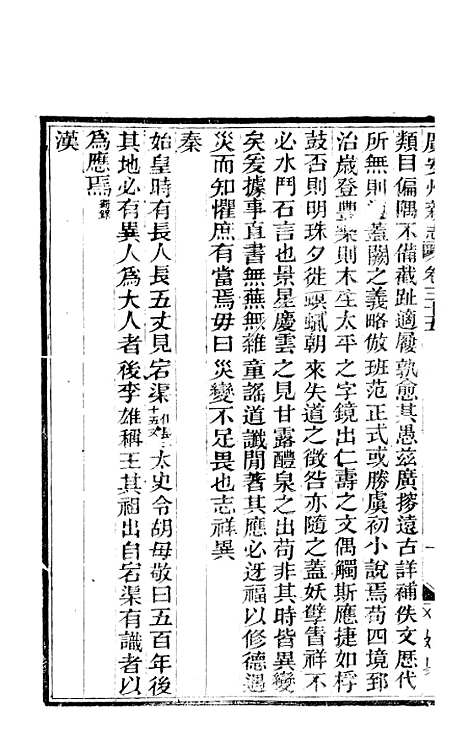 廣安州新志 卷三十五 一
類目偏隅不備截趾適履孰愈其愚茲廣摉遠古詳補佚文歷代
所無則蓋闕之義略倣班范正式或勝虞初小說焉苟四境郅
治歲登豐樂則木生太平之字鏡出仁壽之文偶觸斯應捷如桴
鼓否則明珠夕徙蝦蟆朝來失道之徵咎亦隨之蓋妖孽眚祥不
必水鬥石言也景星慶雲之見甘露醴泉之出苟非其時皆異變
矣爰據事直書無蕪無雜童謠道讖閒著其應必迓福以修德遇
災而知懼庶有當焉毋曰災變不足畏也志祥異
秦
始皇時有長人長五丈見宕渠太史令胡毋敬曰五百年後
其地必有異人為大人者後李雄稱王其祖出自宕渠有識者以
為應焉
漢